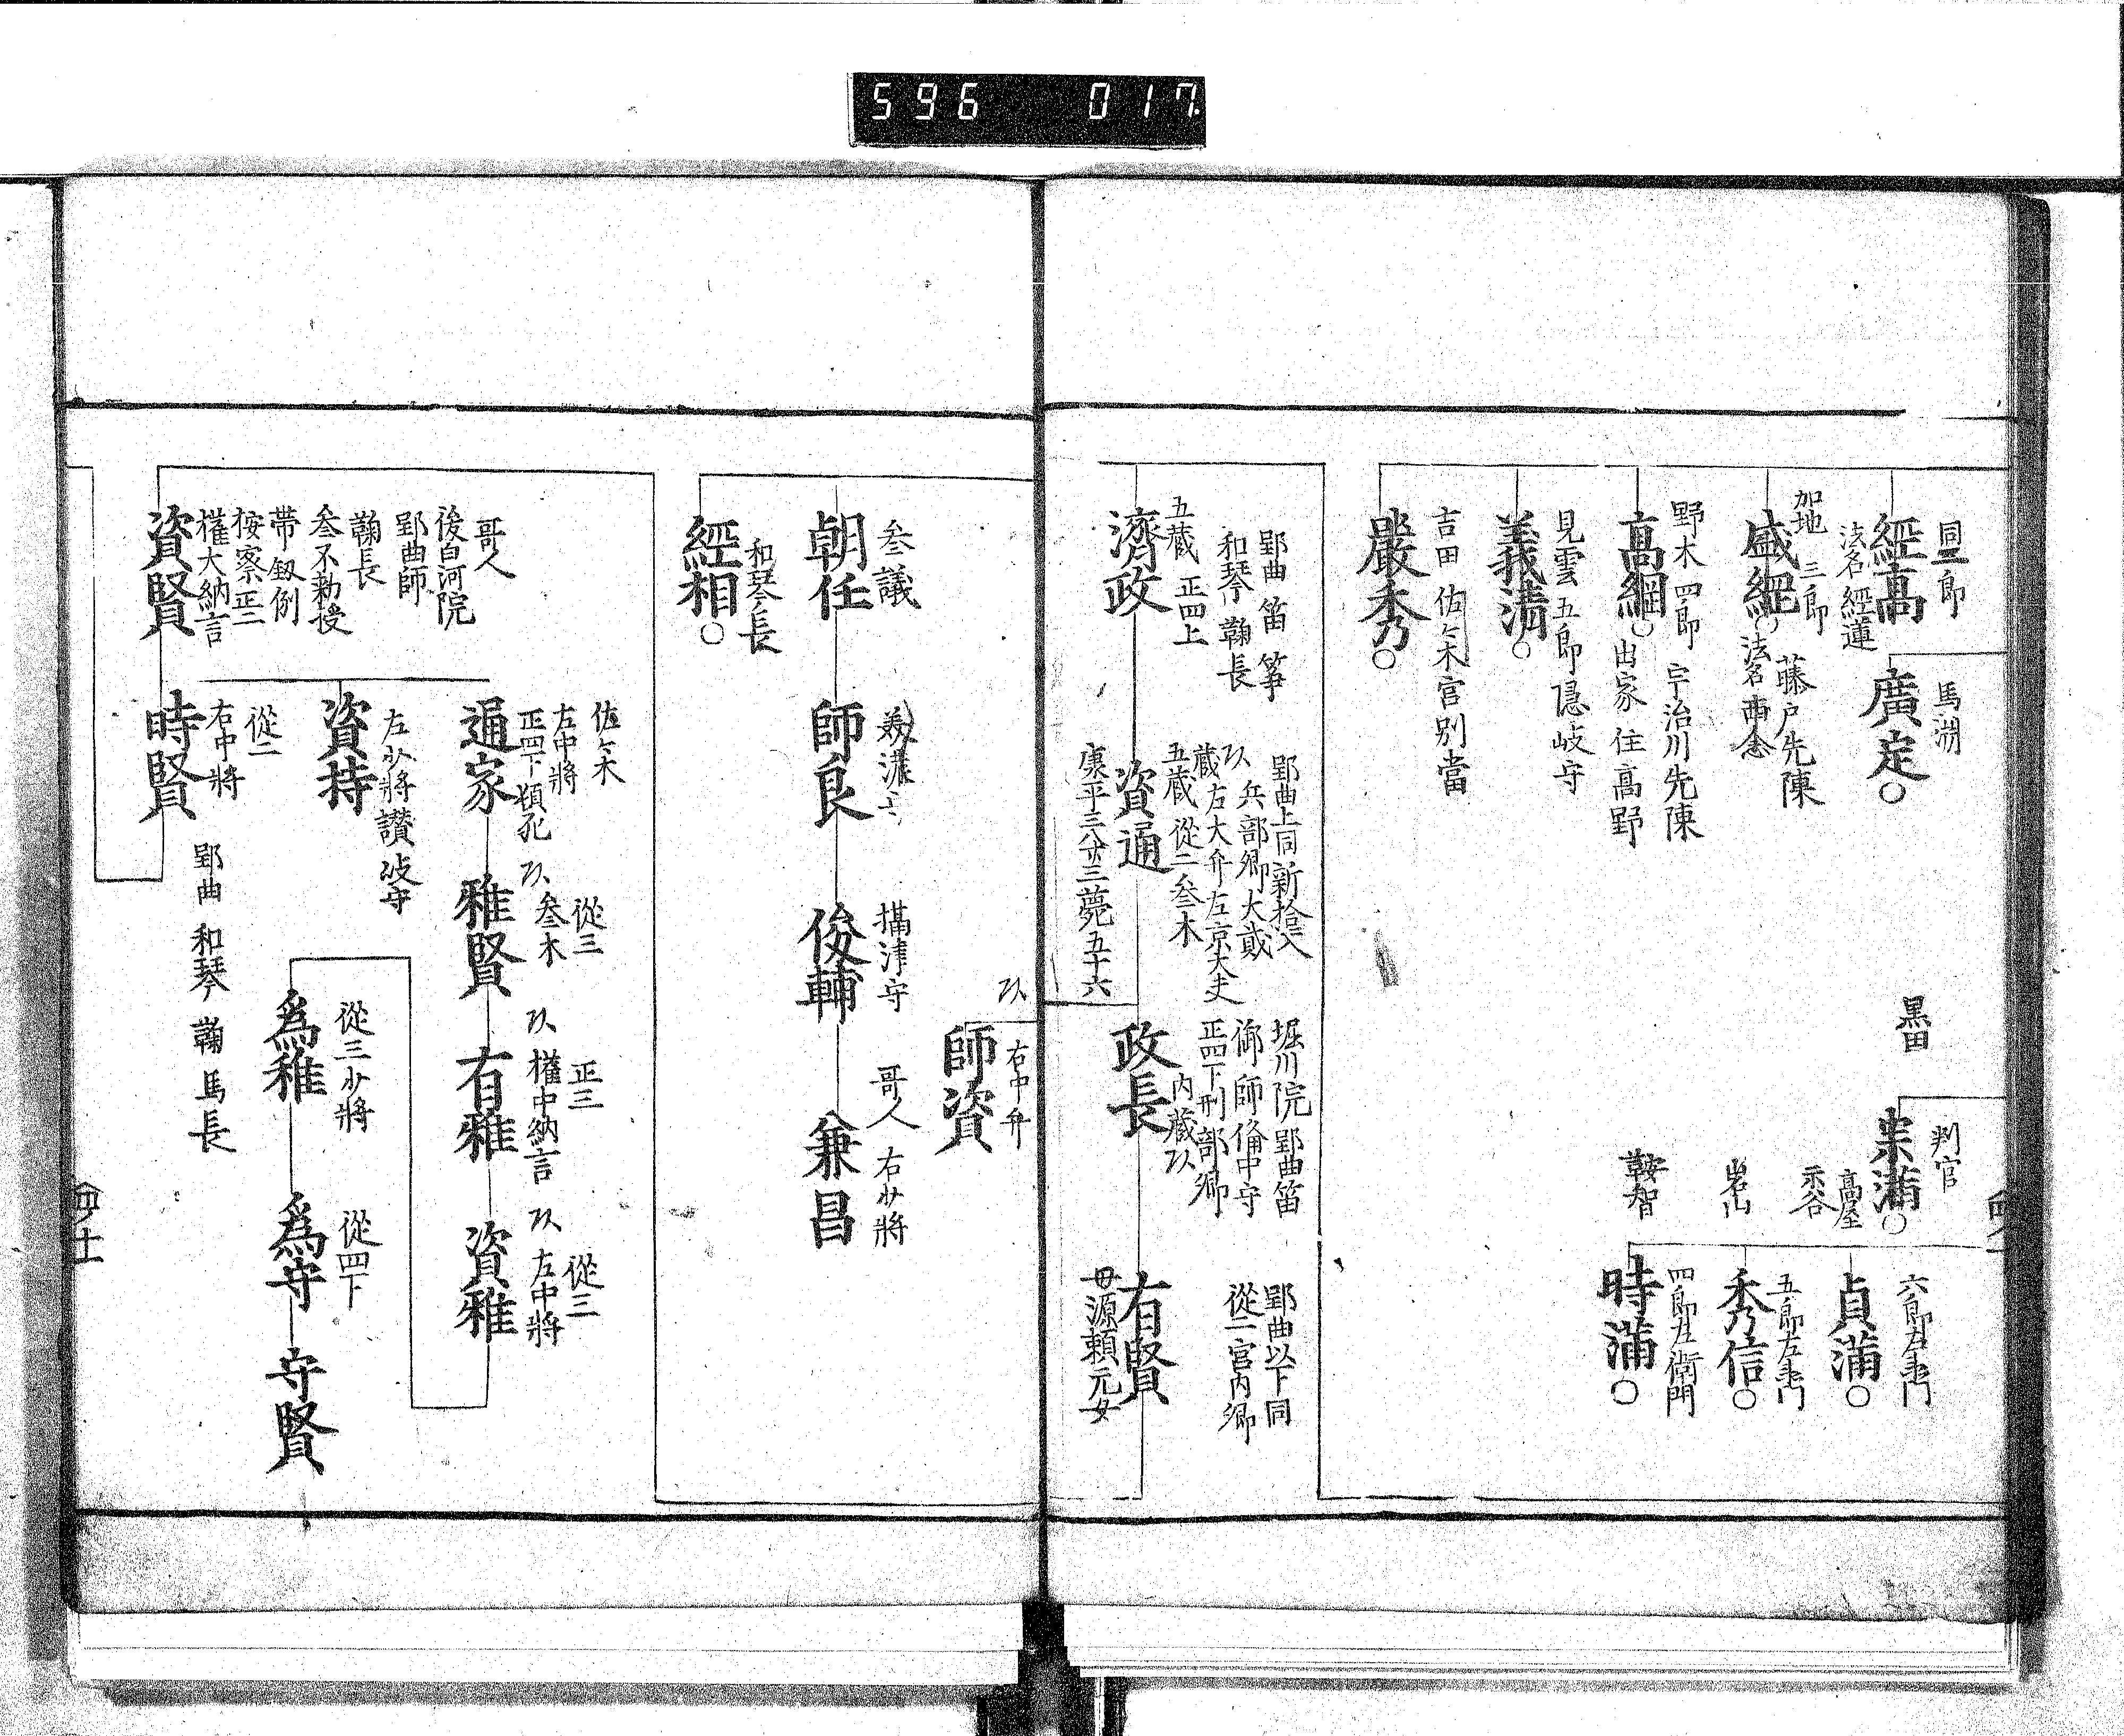 596 017
同二郎
經高
法名經蓮
馬渕
廣定○
黒田
判官
宗満○
六郎左衛門
高屋
貞満○
五郎左衛門
岩山
秀信○
四郎左衛門
鞍智
時満○
加地 三郎 藤戸先陳
盛綱○法名西念
野木 四郎 宇治川先陳
高綱○出家住高野
見雲五郎隠岐守
義清○
吉田 佐々木宮別當
嚴秀○
郢曲 笛 箏
和琴 鞠長
五蔵 正四上
濟政
郢曲上同
兵部卿大貳
蔵右大弁左京大夫
五蔵 從二 参木
資通
康平三八廿三薨五十六
堀川院郢曲笛
御師備中守
正四下刑部卿
政長
郢曲以下同
從二宮内卿
有賢
母源頼元女
右中弁
師資
参議
朝任
師良
摂津守
俊輔
哥人 右少將
兼昌
和琴長
經相○
哥人
後白河院
郢曲師
鞠長
参不勅授
帯釼例
按察正二
權大納言
資賢
佐々木
左中將
正四下頓死
通家
從三
参木
雅賢
正三
權中納言
有雅
從三
左中將
資雅
從三少將
爲雅
從四下
爲守
守賢
左少將讃岐守
資持
從二
右中將
時賢
郢曲 和琴 鞠 馬長